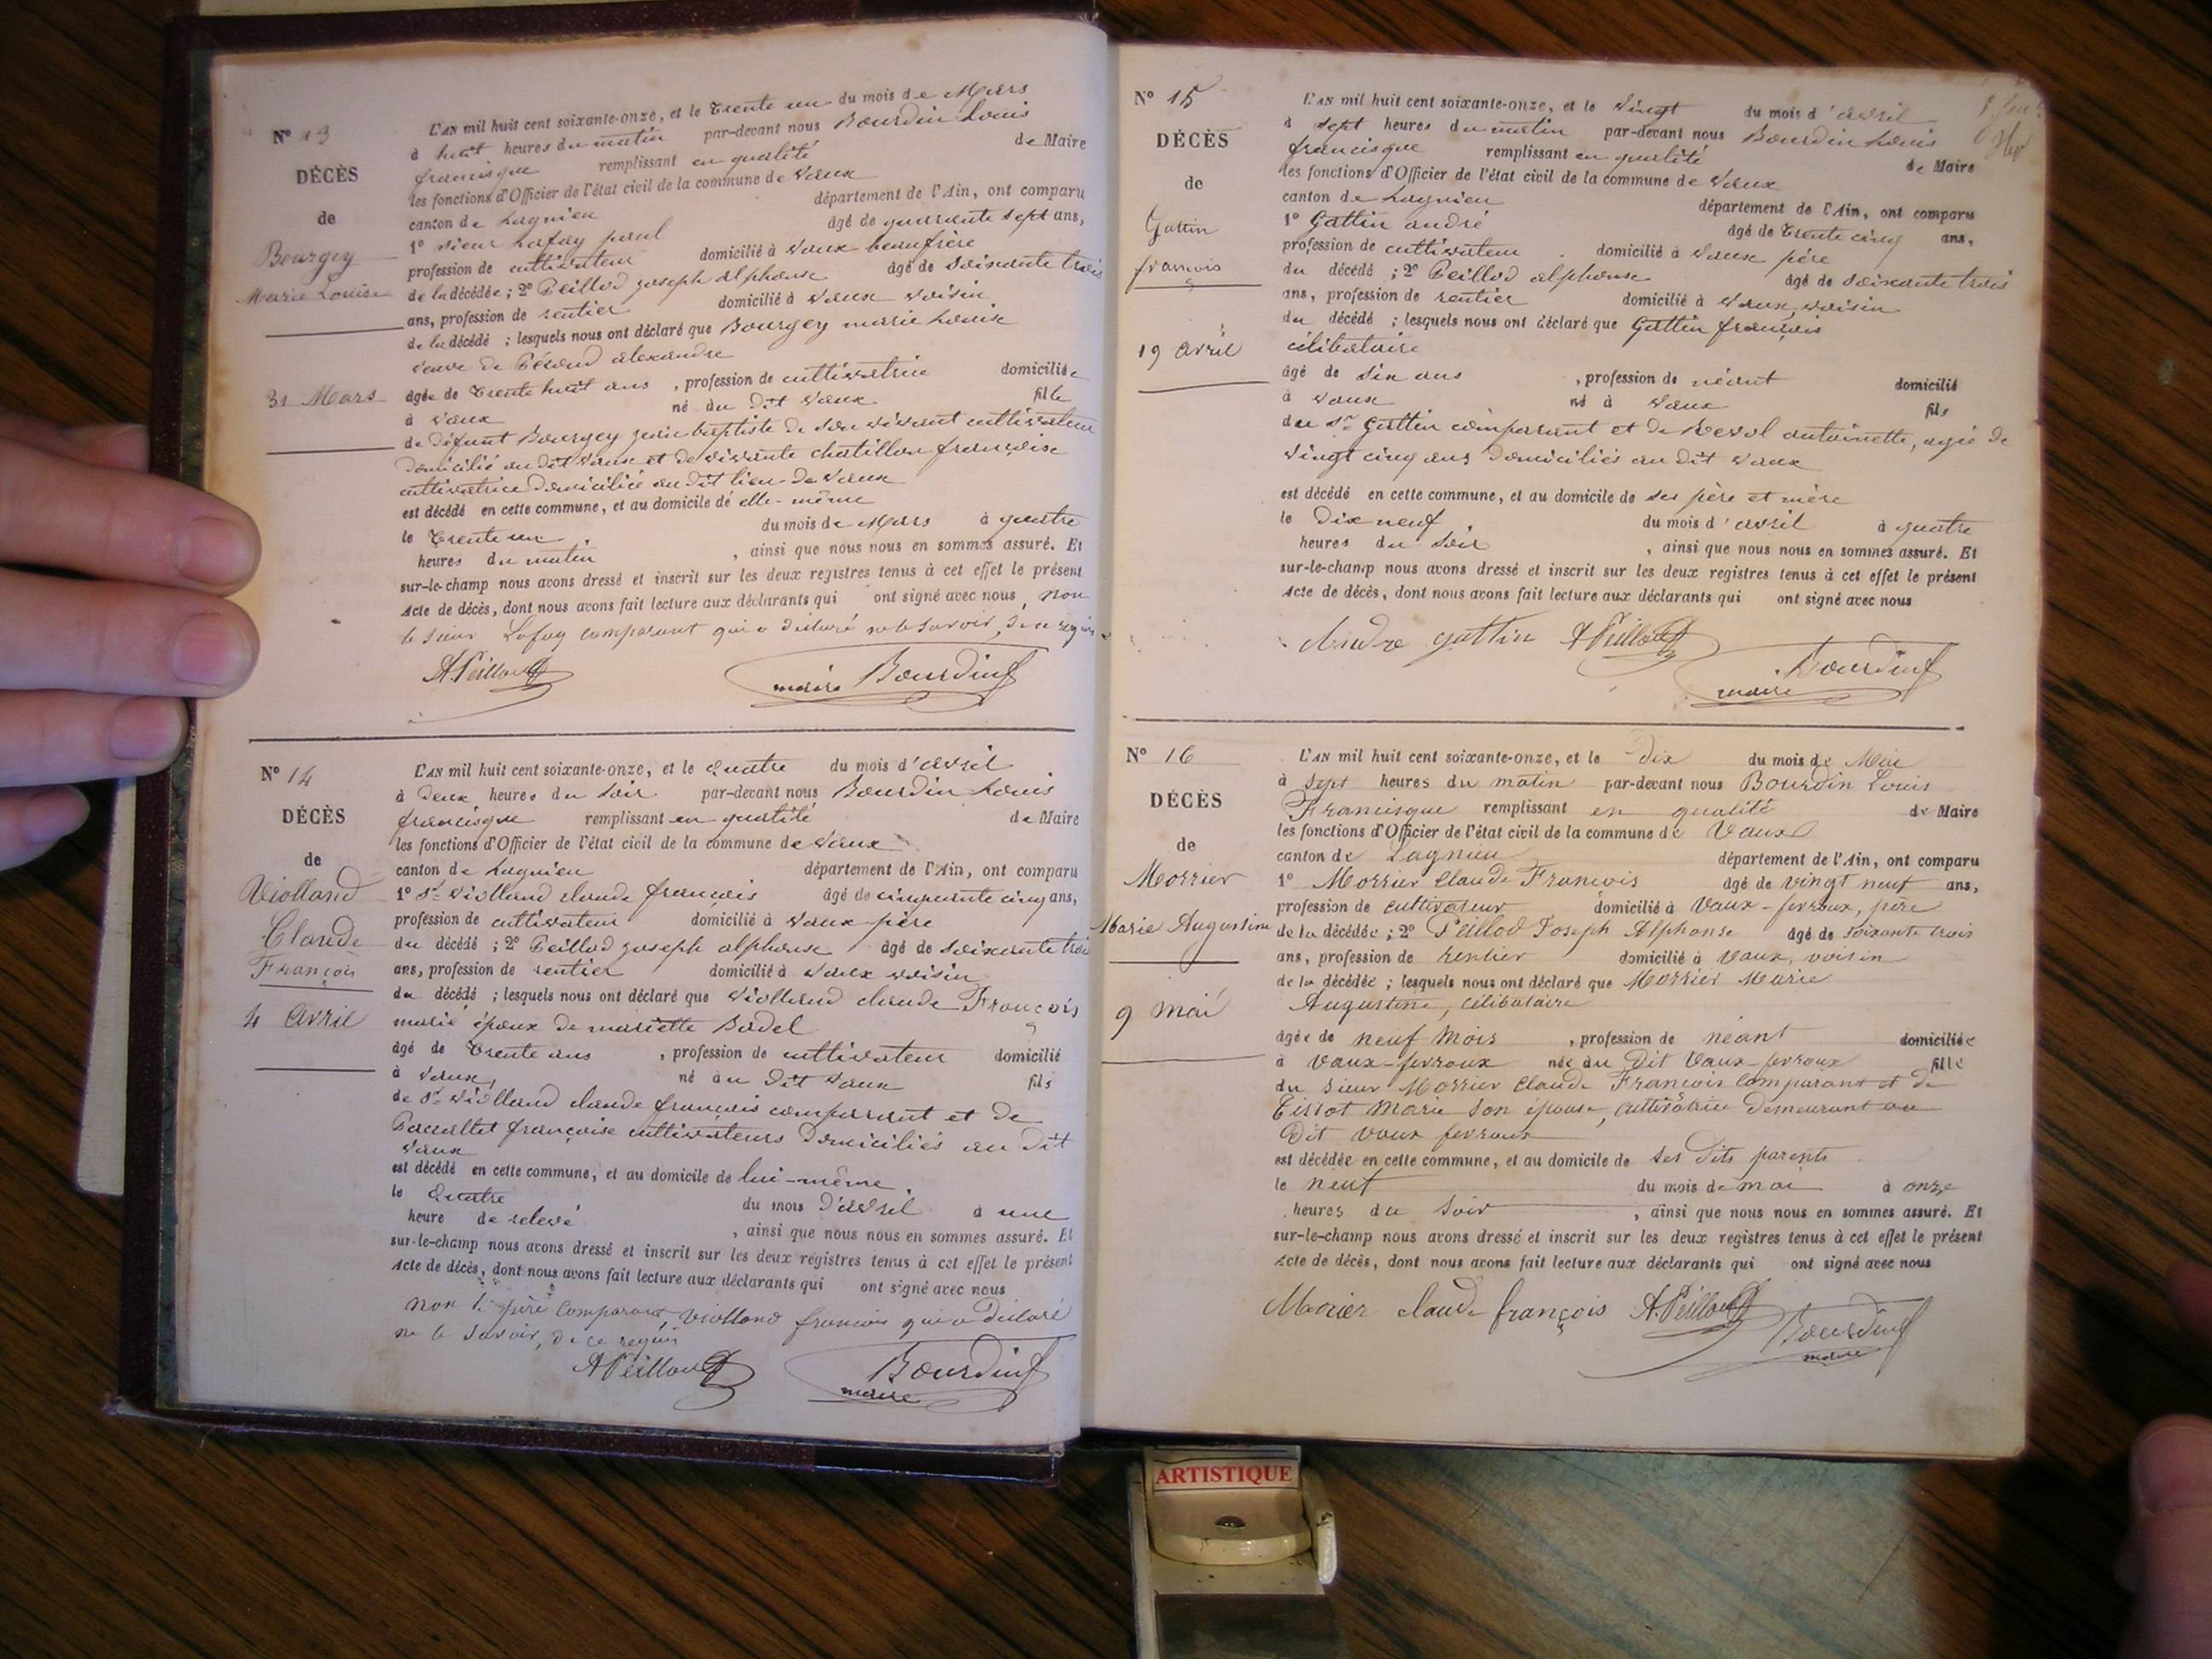 Nº 13
DÉCÈS
de
Bourgey
Marie Louise
31 Mars
L'AN mil huit cent soixante-onze, et le Trente un du mois de Mars
à huit heures du matin par-devant nous Bourdin Louis
francisque remplissant en qualité de Maire
les fonctions d'Officier de l'état civil de la commune de Vaux
canton de Lagnieu département de l'Ain, ont comparu
1º sieur Lafay paul âgé de quarante sept ans,
profession de cultivateur domicilié à Vaux beaufrère
de la décédée ; 2º Peillod joseph alphonse âgé de soixante trois
ans, profession de rentier domicilié à Vaux voisin
de la décédé ; lesquels nous ont déclaré que Bourgey marie Louise
veuve de alexandre
agée de trente huit ans , profession de cultivatrice domiciliée
à Vaux né au dit Vaux fille
de défunt Bourgey jean baptiste de son vivant cultivateur
domicilié au dit Vaux et de vivante chatillon françoise
cultivatrice domiciliée au dit lieu de Vaux
est décédé en cette commune, et au domicile de elle-même
le trente un du mois de Mars à quatre
heures du matin , ainsi que nous nous en sommes assuré. Et
sur-le-champ nous avons dressé et inscrit sur les deux registres tenus à cet effet le présent
Acte de décès, dont nous avons fait lecture aux déclarants qui ont signé avec nous, non
le sieur Lafay comparant qui a déclaré ne le savoir, de ce requis
A. Peillod maire Bourdin f
Nº 14
DÉCÈS
de
Violland
Claude
François
4 Avril
L'AN mil huit cent soixante-onze, et le quatre du mois d'avril
à deux heures du soir par-devant nous Bourdin Louis
francisque remplissant en qualité de Maire
les fonctions d'Officier de l'état civil de la commune de Vaux
canton de Lagnieu département de l'Ain, ont comparu
1º Sr Violland claude françois âgé de cinquante cinq ans,
profession de cultivateur domicilié à Vaux père
du décédé ; 2º Peillod joseph alphonse âgé de soixante trois
ans, profession de rentier domicilié à Vaux voisin
du décédé ; lesquels nous ont déclaré que Violland claude François
marié époux de mariette Badel
âgé de trente ans , profession de cultivateur domicilié
à Vaux, né au dit Vaux fils
de Sr Violland claude françois comparant et de
françoise cultivateurs domiciliés au dit
Vaux
est décédé en cette commune, et au domicile de lui-même.
le quatre du mois d'avril à une
heure de relevé , ainsi que nous nous en sommes assuré. Et
sur-le-champ nous avons dressé et inscrit sur les deux registres tenus à cet effet le présent
Acte de décès, dont nous avons fait lecture aux déclarants qui ont signé avec nous
non le père comparant, Violland francois qui a déclaré
ne le savoir, de ce requis
A Peillod Bourdin f
maire
Nº 15
DÉCÈS
de
Gattin
francois
19 avril
L'AN mil huit cent soixante-onze, et le vingt du mois d'avril
à sept heures du matin par-devant nous Bourdin Louis
francisque remplissant en qualité de Maire
les fonctions d'Officier de l'état civil de la commune de Vaux
canton de Lagnieu département de l'Ain, ont comparu
1º Gattin andré âgé de trente cinq ans,
profession de cultivateur domicilié à Vaux père
du décédé ; 2º Peillod alphonse âgé de soixante trois
ans, profession de rentier domicilié à Vaux, voisin
du décédé ; lesquels nous ont déclaré que Gattin françois
célibataire
âgé de six ans , profession de néant domicilié
à Vaux né à Vaux fils
du Sr Gattin comparant et de Revol antoinette, agée de
vingt cinq ans domiciliés au dit Vaux
est décédé en cette commune, et au domicile de ses père et mère
le dix neuf du mois d'avril à quatre
heures du soir , ainsi que nous nous en sommes assuré. Et
sur-le-champ nous avons dressé et inscrit sur les deux registres tenus à cet effet le présent
Acte de décès, dont nous avons fait lecture aux déclarants qui ont signé avec nous
Andre gattin A Peillod
Bourdin f
maire
Nº 16
DÉCÈS
de
Morrier
Marie Augustine
9 mai
L'AN mil huit cent soixante-onze, et le dix du mois de Mai
à sept heures du matin par-devant nous Bourdin Louis
Francisque remplissant en qualité de Maire
les fonctions d'Officier de l'état civil de la commune de Vaux
canton de Lagnieu département de l'Ain, ont comparu
1º Morrier Claude Francois âgé de vingt neuf ans,
profession de cultivateur domicilié à Vaux-fevroux, père
de la décédée ; 2º Peillod Joseph Alphonse âgé de soixante trois
ans, profession de rentier domicilié à Vaux, voisin
de la décédée ; lesquels nous ont déclaré que Morrier Marie
Augustine, célibataire
âgée de neuf mois , profession de néant domiciliée
à Vaux-fevroux née au Dit Vaux-fevroux fille
du sieur Morrier Claude François comparant et de
Tissot Marie son épouse, cultivatrice demeurant au
Dit vaux fevroux
est décédée en cette commune, et au domicile de ses dits parents
le neuf du mois de mai à onze
heures du soir , ainsi que nous nous en sommes assuré. Et
sur-le-champ nous avons dressé et inscrit sur les deux registres tenus à cet effet le présent
Acte de décès, dont nous avons fait lecture aux déclarants qui ont signé avec nous
Morier claude françois A. Peillod Bourdin f
maire
ARTISTIQUE